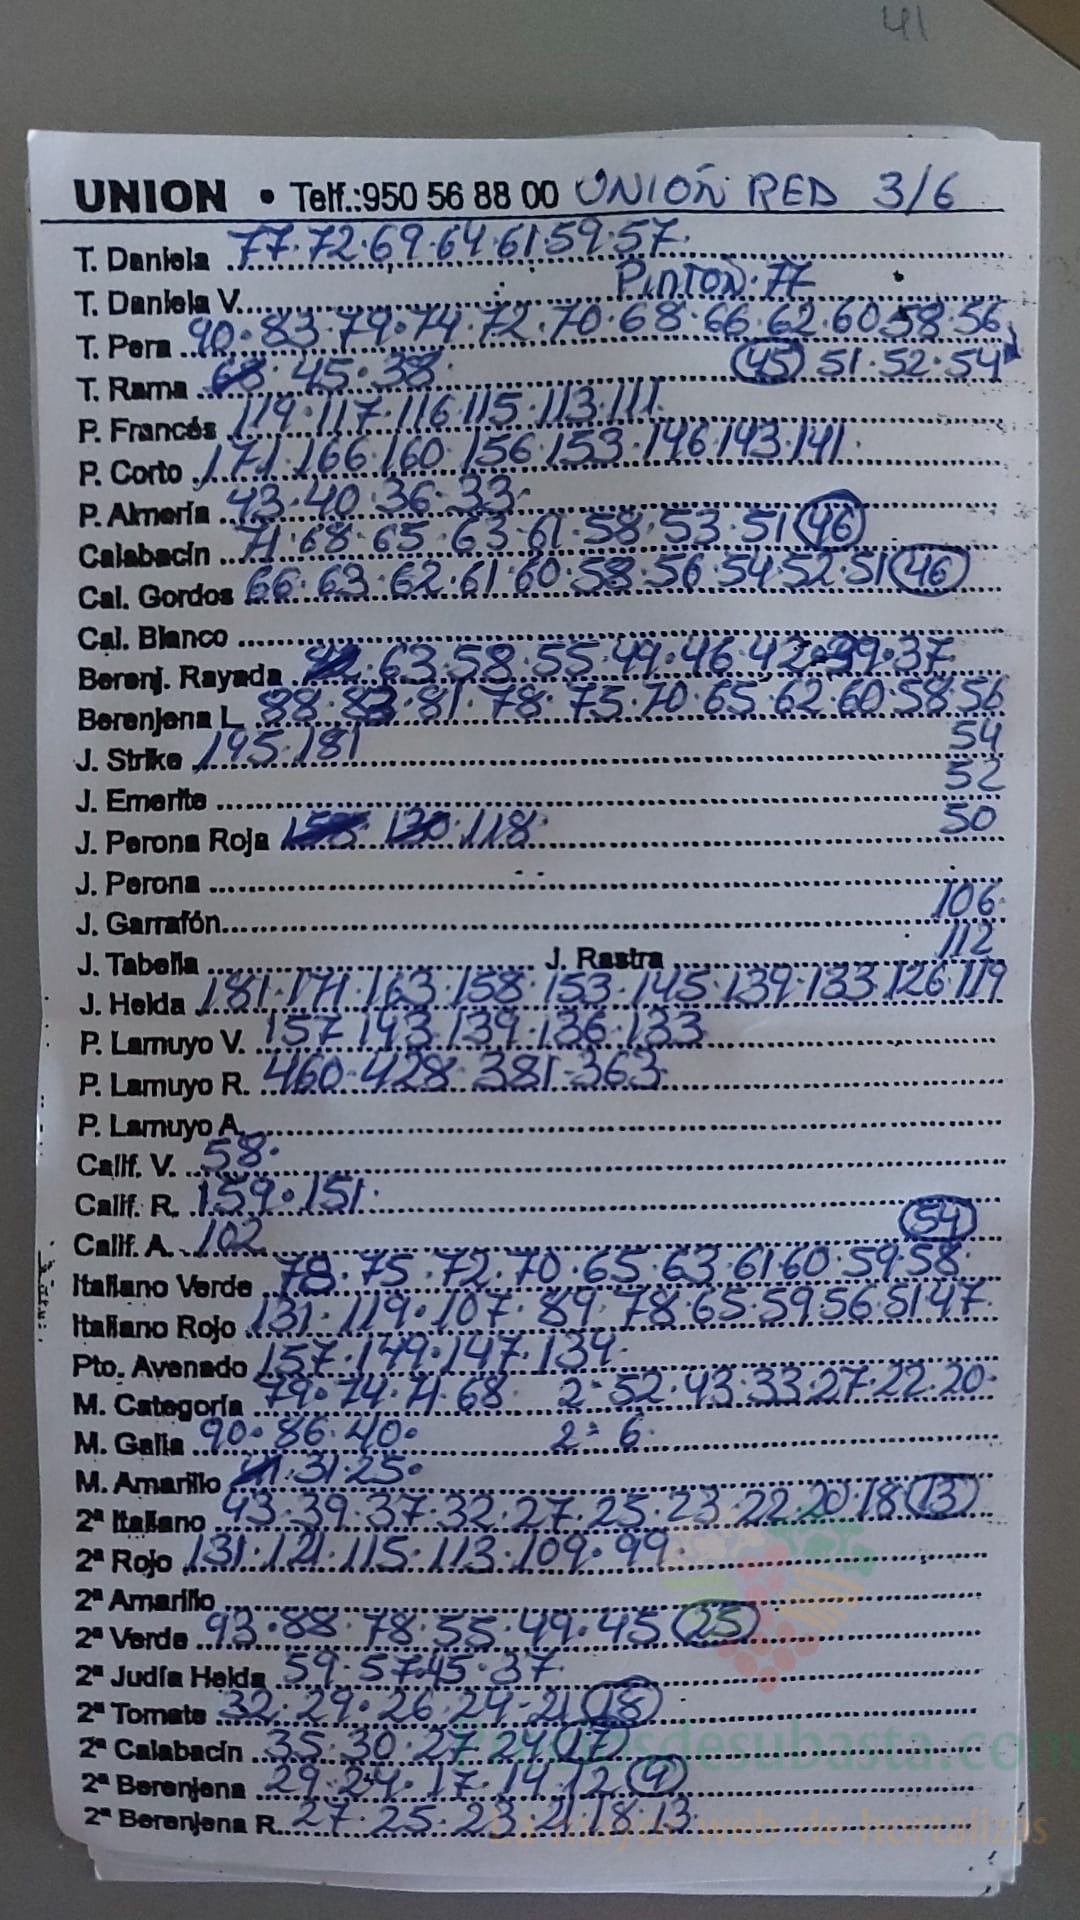 41
UNION • Telf.:950 56 88 00 UNIÓN RED 3/6
T. Daniela 77·72·69·64·61·59·57·
T. Daniela V. PINTON·77
T. Pera 90·83·79·74·72·70·68·66·62·60·58·56
T. Rama 68·45·38· 45 51·52·54
P. Francés 119·117·116·115·113·111
P. Corto 171·166·160·156·153·146·143·141·
P. Almería 43·40·36·33·
Calabacín 71·68·65·63·61·58·53·51 46
Cal. Gordos 66·63·62·61·60·58·56·54·52·51 46
Cal. Blanco
Berenj. Rayada 63·58·55·49·46·42·39·37
Berenjena L 88·83·81·78·75·70·65·62·60·58·56
J. Strike 195·181 54
J. Emerite 52
J. Perona Roja 158·130·118· 50
J. Perona
J. Garrafón 106
J. Tabella J. Rastra 112
J. Helda 181·171·163·158·153·145·139·133·126·119
P. Lamuyo V. 157·143·139·136·133
P. Lamuyo R. 460·428·381·363
P. Lamuyo A.
Calif. V. 58·
Calif. R. 159·151·
Calif. A. 102 54
Italiano Verde 78·75·72·70·65·63·61·60·59·58·
Italiano Rojo 131·119·107·89·78·65·59·56·51·47·
Pto. Avenado 157·149·147·134·
M. Categoría 79·74·71·68 2ª 52·43·33·27·22·20·
M. Galia 90·86·40· 2ª 6·
M. Amarillo 41·31·25·
2ª Italiano 43·39·37·32·27·25·23·22·20·18 13
2ª Rojo 131·121·115·113·109·99
2ª Amarillo
2ª Verde 93·88·78·55·49·45 25
2ª Judía Helda 59·57·45·37
2ª Tomate 32·29·26·24·21 18
2ª Calabacín 35·30·27·24 17
2ª Berenjena 29·24·17·14·12 9
2ª Berenjena R. 27·25·23·21·18·13·
Preciosdesubasta.com
La mayor web de hortalizas